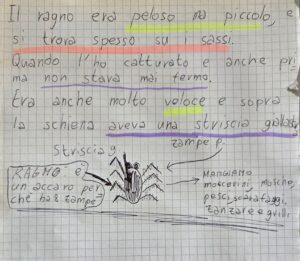 Il ragno era peloso ma piccolo, e
si trova spesso su i sassi.
Quando l'ho catturato e anche pri
ma non stava mai fermo.
Era anche molto veloce e sopra
la schiena aveva una striscia gialla
Striscia g.
zampe p.
RAGNO e
un accaro per
ché ha 8 zampe
MANGIANO
moscerini, mosche,
pesci, scarafaggi,
zanzare e grilli